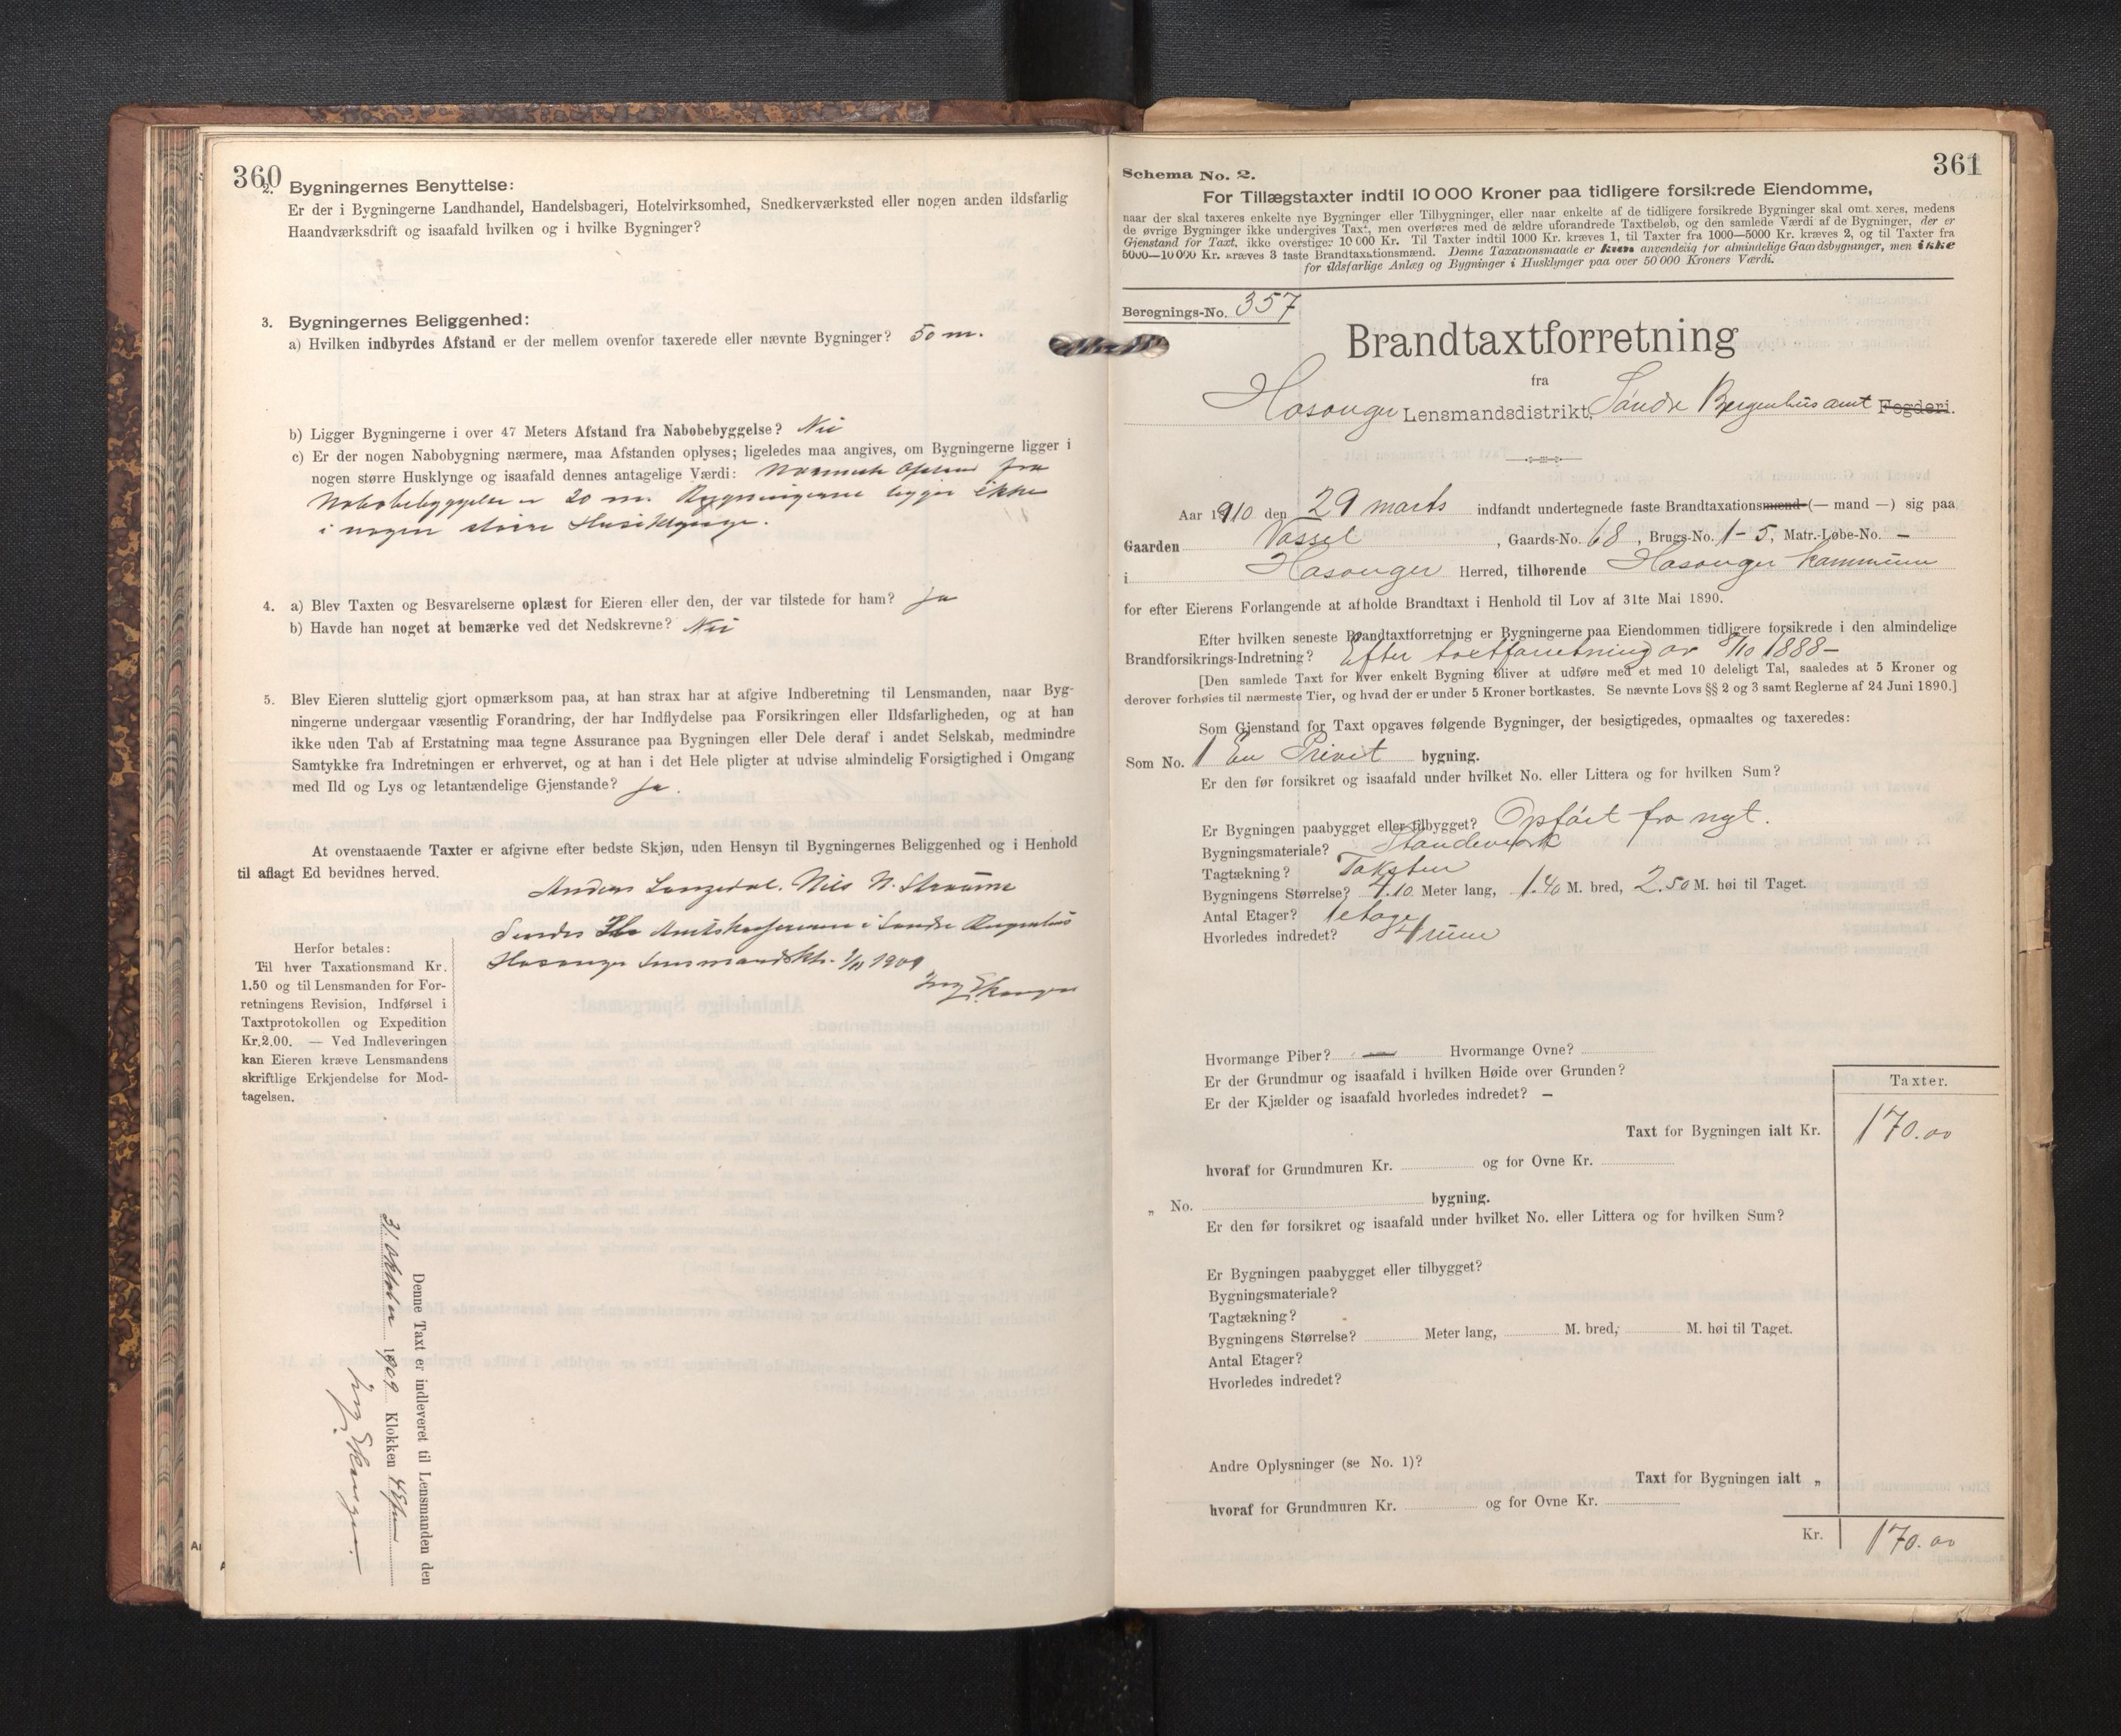 360
2. Bygningernes Benyttelse:
Er der i Bygningerne Landhandel, Handelsbageri, Hotelvirksomhed, Snedkerværksted eller nogen anden ildsfarlig
Haandværksdrift og isaafald hvilken og i hvilke Bygninger?
3. Bygningernes Beliggenhed:
a) Hvilken indbyrdes Afstand er der mellem ovenfor taxerede eller nævnte Bygninger? 50 m.
b) Ligger Bygningerne i over 47 Meters Afstand fra Nabobebyggelse? Nei
c) Er der nogen Nabobygning nærmere, maa Afstanden oplyses; ligeledes maa angives, om Bygningerne ligger i
nogen større Husklynge og isaafald dennes antagelige Værdi: Nærmeste Afstand fra
Nabobebyggelse er 20 m. Bygningerne ligger ikke
i nogen større Husklynge.
4. a) Blev Taxten og Besvarelserne oplæst for Eieren eller den, der var tilstede for ham? Ja
b) Havde han noget at bemærke ved det Nedskrevne? Nei
5. Blev Eieren sluttelig gjort opmærksom paa, at han strax har at afgive Indberetning til Lensmanden, naar Byg-
ningerne undergaar væsentlig Forandring, der har Indflydelse paa Forsikringen eller Ildsfarligheden, og at han
ikke uden Tab af Erstatning maa tegne Assurance paa Bygningen eller Dele deraf i andet Selskab, medmindre
Samtykke fra Indretningen er erhvervet, og at han i det Hele pligter at udvise almindelig Forsigtighed i Omgang
med Ild og Lys og letantændelige Gjenstande? Ja.
At ovenstaaende Taxter er afgivne efter bedste Skjøn, uden Hensyn til Bygningernes Beliggenhed og i Henhold
til aflagt Ed bevidnes herved.
Anders Langedal. Nils N. Straume
Sendes Amtskassereren i Søndre Bergenhus
Hosanger Lensmandsktr. 1/11 1909
Herfor betales:
Til hver Taxationsmand Kr.
1.50 og til Lensmanden for For-
retningens Revision, Indførsel i
Taxtprotokollen og Expedition
Kr.2.00. — Ved Indleveringen
kan Eieren kræve Lensmandens
skriftlige Erkjendelse for Mod-
tagelsen.
Denne Taxt er indleveret til Lensmanden den
31 oktober 1909 Klokken 4 Efm
361
Schema No. 2.
For Tillægstaxter indtil 10 000 Kroner paa tidligere forsikrede Eiendomme,
naar der skal taxeres enkelte nye Bygninger eller Tilbygninger, eller naar enkelte af de tidligere forsikrede Bygninger skal omtaxeres, medens
de øvrige Bygninger ikke undergives Taxt, men overføres med de ældre uforandrede Taxtbeløb, og den samlede Værdi af de Bygninger, der er
Gjenstand for Taxt, ikke overstiger 10 000 Kr. Til Taxter indtil 1000 Kr. kræves 1, til Taxter fra 1000—5000 Kr. kræves 2, og til Taxter fra
5000—10 000 Kr. kræves 3 faste Brandtaxationsmænd. Denne Taxationsmaade er kun anvendelig for almindelige Gaardsbygninger, men ikke
for ildsfarlige Anlæg og Bygninger i Husklynger paa over 50 000 Kroners Værdi.
Beregnings-No. 357
Brandtaxtforretning
fra
Hosanger Lensmandsdistrikt, Søndre Bergenhus amt Fogderi.
Aar 1910 den 29 marts indfandt undertegnede faste Brandtaxationsmænd (— mand —) sig paa
Gaarden Vassel, Gaards-No. 68, Brugs-No. 1-5, Matr.-Løbe-No. —
i Hosanger Herred, tilhørende Hosanger Kommune
for efter Eierens Forlangende at afholde Brandtaxt i Henhold til Lov af 31te Mai 1890.
Efter hvilken seneste Brandtaxtforretning er Bygningerne paa Eiendommen tidligere forsikrede i den almindelige
Brandforsikrings-Indretning? Efter taxtforretning av 8/10 1888 —
[Den samlede Taxt for hver enkelt Bygning bliver at udføre med et med 10 deleligt Tal, saaledes at 5 Kroner og
derover forhøies til nærmeste Tier, og hvad der er under 5 Kroner bortkastes. Se nævnte Lovs §§ 2 og 3 samt Reglerne af 24 Juni 1890.]
Som Gjenstand for Taxt opgaves følgende Bygninger, der besigtigedes, opmaaltes og taxeredes:
Som No. 1 En Privet bygning.
Er den før forsikret og isaafald under hvilket No. eller Littera og for hvilken Sum?
Er Bygningen paabygget eller tilbygget? Opført fra nyt.
Bygningsmateriale? Standværk
Tagtækning? Taksten
Bygningens Størrelse? 4.10 Meter lang, 1.40 M. bred, 2.50 M. høi til Taget.
Antal Etager? 1 etage
Hvorledes indredet? 4 rum
Hvormange Piber? — Hvormange Ovne?
Er der Grundmur og isaafald i hvilken Høide over Grunden?
Er der Kjælder og isaafald hvorledes indredet? —
Taxter.
Taxt for Bygningen ialt Kr. 170.00
hvoraf for Grundmuren Kr. og for Ovne Kr.
„ No. bygning.
Er den før forsikret og isaafald under hvilket No. eller Littera og for hvilken Sum?
Er Bygningen paabygget eller tilbygget?
Bygningsmateriale?
Tagtækning?
Bygningens Størrelse? Meter lang, M. bred, M. høi til Taget.
Antal Etager?
Hvorledes indredet?
Andre Oplysninger (se No. 1)?
Taxt for Bygningen ialt „
hvoraf for Grundmuren Kr. og for Ovne Kr.
Kr. 170.00